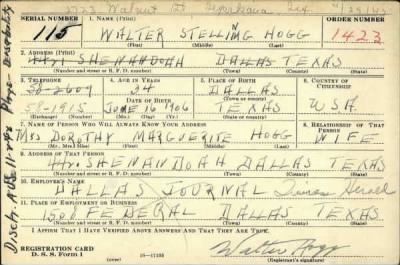 1723 Walnut St Texarkana Tex 4/29/43
SERIAL NUMBER 1. NAME (Print) ORDER NUMBER
115 WALTER STELLING HOGG 1423
(First) (Middle) (Last)
2. ADDRESS (Print)
SHENANDOAH DALLAS TEXAS
(Number and street or R. F. D. number) (Town) (County) (State)
3. TELEPHONE 4. AGE IN YEARS 5. PLACE OF BIRTH 6. COUNTRY OF CITIZENSHIP
58-2009 34 DALLAS
DATE OF BIRTH (Town or county)
58-1915 JUNE 16 1906 TEXAS USA
(Exchange) (Number) (Mo.) (Day) (Yr.) (State or country)
7. NAME OF PERSON WHO WILL ALWAYS KNOW YOUR ADDRESS 8. RELATIONSHIP OF THAT PERSON
MRS DOROTHY MARGUERITE HOGG WIFE
(Mr., Mrs., Miss) (First) (Middle) (Last)
9. ADDRESS OF THAT PERSON
SHENANDOAH DALLAS TEXAS
(Number and street or R. F. D. number) (Town) (County) (State)
10. EMPLOYER'S NAME
DALLAS JOURNAL Times Herald
11. PLACE OF EMPLOYMENT OR BUSINESS
1501 FEDERAL DALLAS TEXAS
(Number and street or R. F. D. number) (Town) (County) (State)
I AFFIRM THAT I HAVE VERIFIED ABOVE ANSWERS AND THAT THEY ARE TRUE.
REGISTRATION CARD
D. S. S. Form 1 16—17105 Walter Hogg
(Registrant's signature)
Phys- Disability